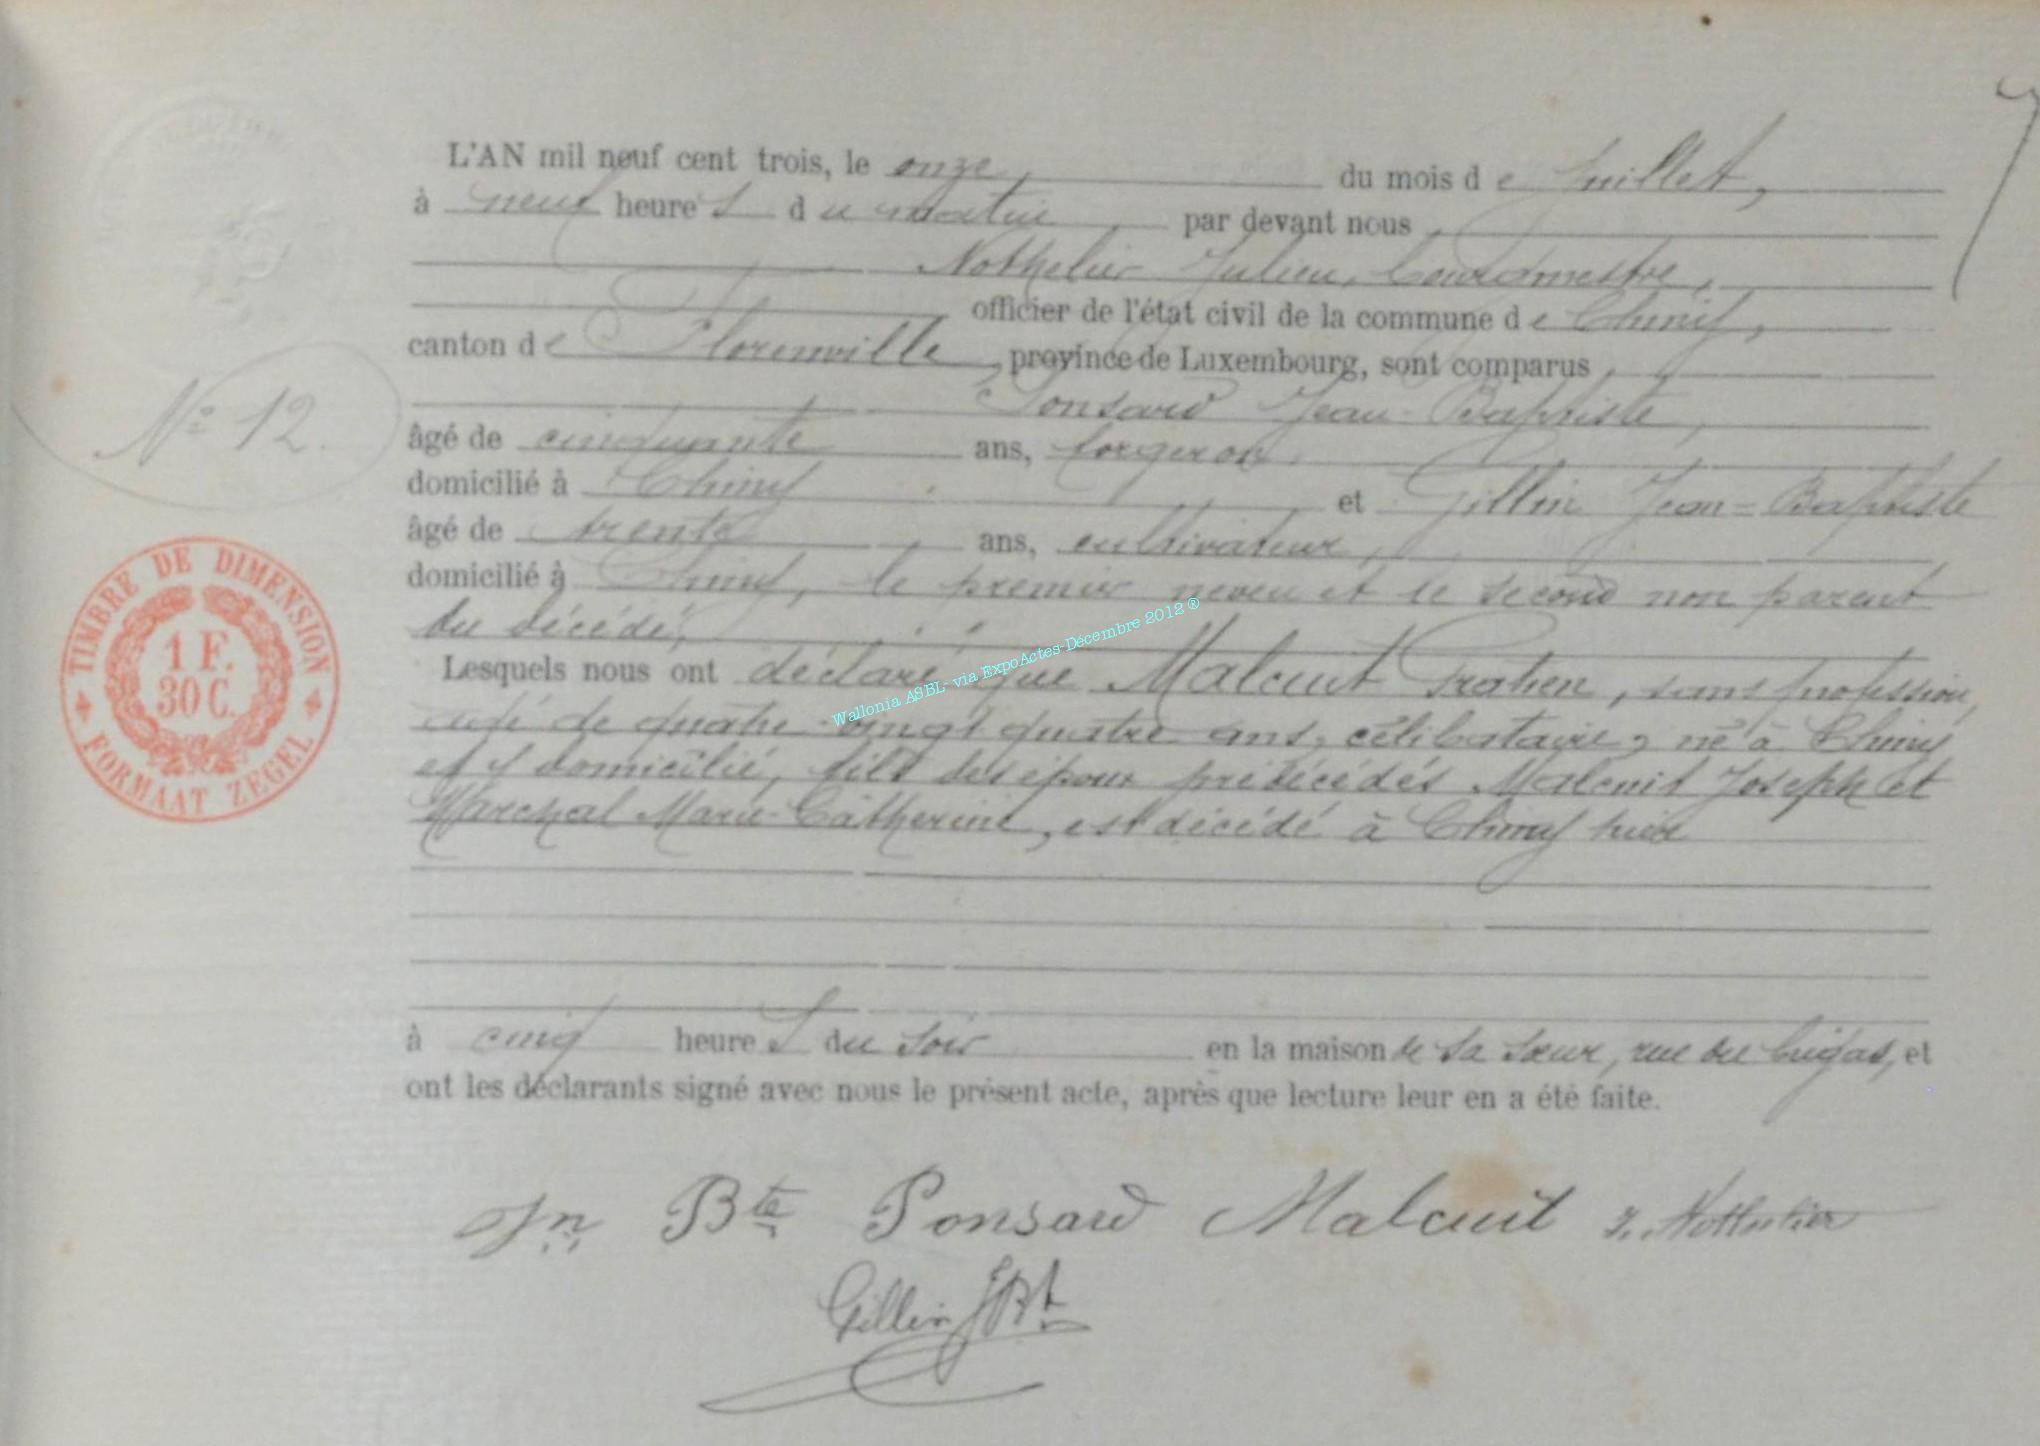 7
L'AN mil neuf cent trois, le onze, du mois de Juillet,
à neuf heures du matin par devant nous,
Nothelier Julien, Bourgmestre,
officier de l'état civil de la commune de Chiny,
canton de Florenville, province de Luxembourg, sont comparus,
Ponsard Jean-Baptiste,
Nº 12.
âgé de cinquante ans, forgeron,
domicilié à Chiny et Gillin Jean-Baptiste
âgé de trente ans, cultivateur,
domicilié à Chiny, le premier neveu et le second non parent
du décédé,
Lesquels nous ont déclaré que Malcuit, sans profession,
âgé de quatre-vingt quatre ans, célibataire, né à Chiny
et y domicilié, fils des époux prédécédés Malcuit Joseph et
Marchal Marie-Catherine, est décédé à Chiny hier
à cinq heures du soir en la maison de sa sœur, rue du, et
ont les déclarants signé avec nous le présent acte, après que lecture leur en a été faite.
Jn Bte Ponsard Malcuit J. Nothelier
Gillin JBt
TIMBRE DE DIMENSION
1 F.
30 C.
FORMAAT ZEGEL
Wallonia ASBL- via ExpoActes-Décembre 2012 ®